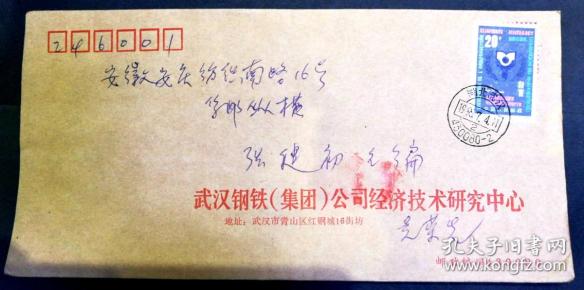 246001
20分
安徽安庆纺织南路16号
集邮纵横
张健初主编
武汉钢铁(集团)公司经济技术研究中心
地址：武汉市青山区红钢城16街坊
430080-2
孔夫子旧书网
www.kongfz.com